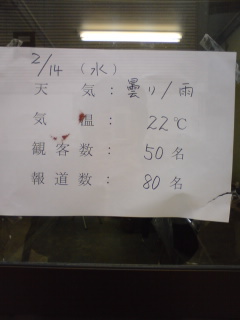 2/14 (水)
天気: 曇り/雨
気温: 22℃
観客数: 50名
報道数: 80名